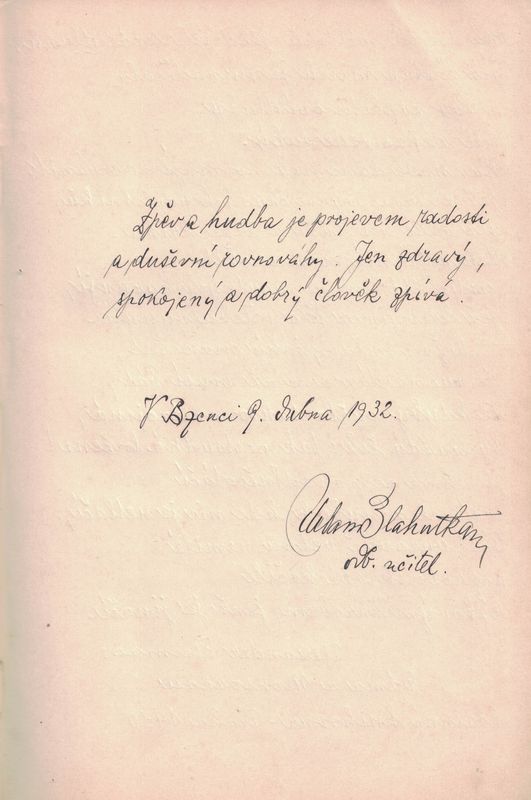 Zpěv a hudba je projevem radosti
a duševní rovnováhy. Jen zdravý,
spokojený a dobrý člověk zpívá.
V Bzenci 9. dubna 1932.
Blahutka
odb. učitel.